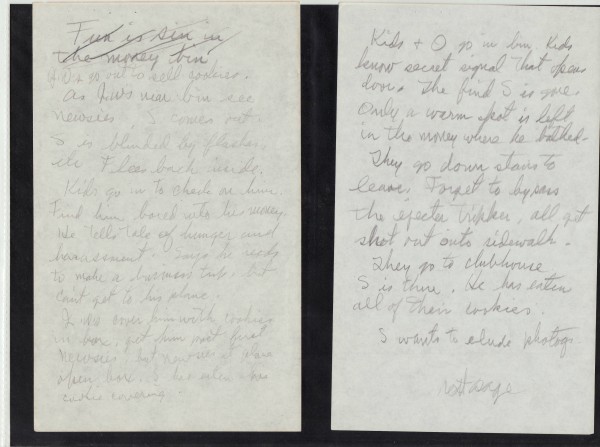 Fun is sin in
the money bin
go out to sell cookies.
As JWs near bin see
newsies, S comes out
S is blinded by flashes,
etc Flees back inside.
Kids go in to check on him.
Find him bored into his money.
He tells tale of hunger and
harassment. Says he ready
to make a business trip, but
can't get to his plane.
JWs cover him with cookies
in box, get him past first
newsies, but newsies at plane
open box. S has eaten his
cookie covering.
Kids + D go in bin. Kids
know secret signal that opens
door. The find S is gone.
Only a warm spot is left
in the money where he bathed.
They go down stairs to
leave. Forget to bypass
the ejecter tripper, all get
shot out onto sidewalk.
They go to clubhouse
S is there. He has eaten
all of their cookies.
S wants to elude photogs